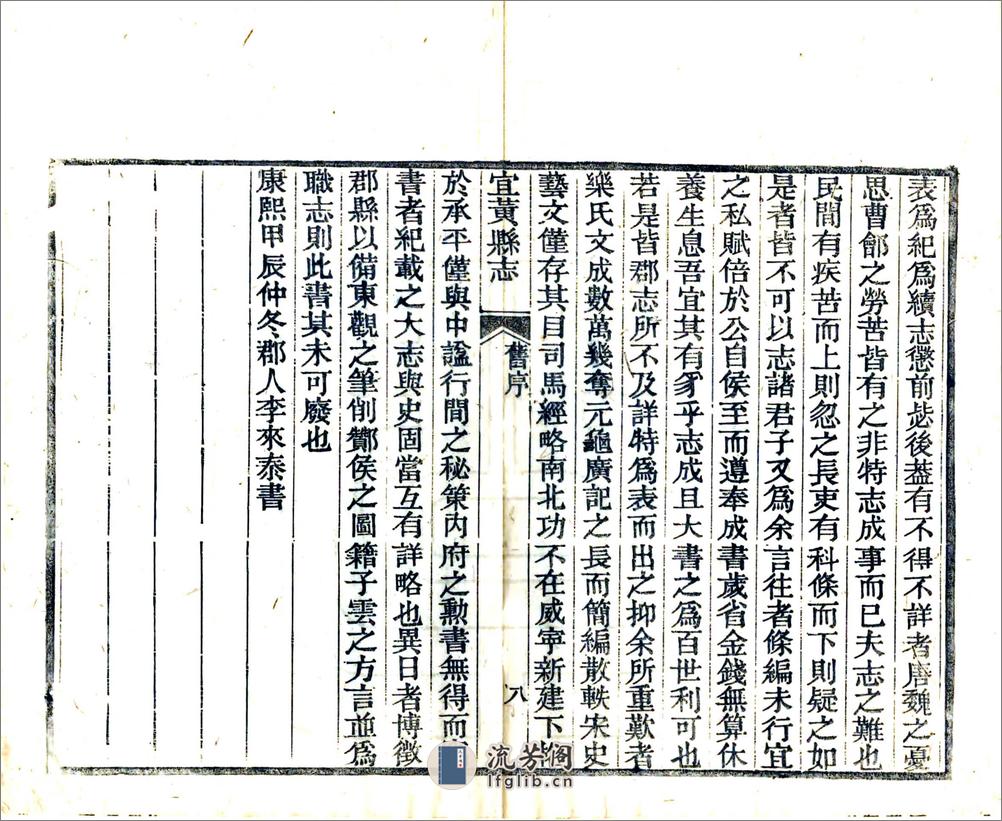 表爲紀爲續志懲前毖後葢有不得不詳者唐魏之憂
思曹鄶之勞苦皆有之非特志成事而已夫志之難也
民間有疾苦而上則忽之長吏有科條而下則疑之如
是者皆不可以志諸君子又爲余言往者條編未行宜
之私賦倍於公自侯至而遵奉成書歲省金錢無算休
養生息吾宜其有豸乎志成且大書之爲百世利可也
若是皆郡志所不及詳特爲表而出之抑余所重歎者
樂氏文成數萬幾奪元龜廣記之長而簡編散軼宋史
藝文僅存其目司馬經略南北功不在威寧新建下
宜黃縣志
舊序
八
於承平僅與中謐行間之秘策內府之勲書無得而
書者紀載之大志與史固當互有詳略也異日者博徵
郡縣以備東觀之筆削酇侯之圖籍子雲之方言並爲
職志則此書其未可廢也
康熙甲辰仲冬郡人李來泰書
流芳阁
lfglib.cn